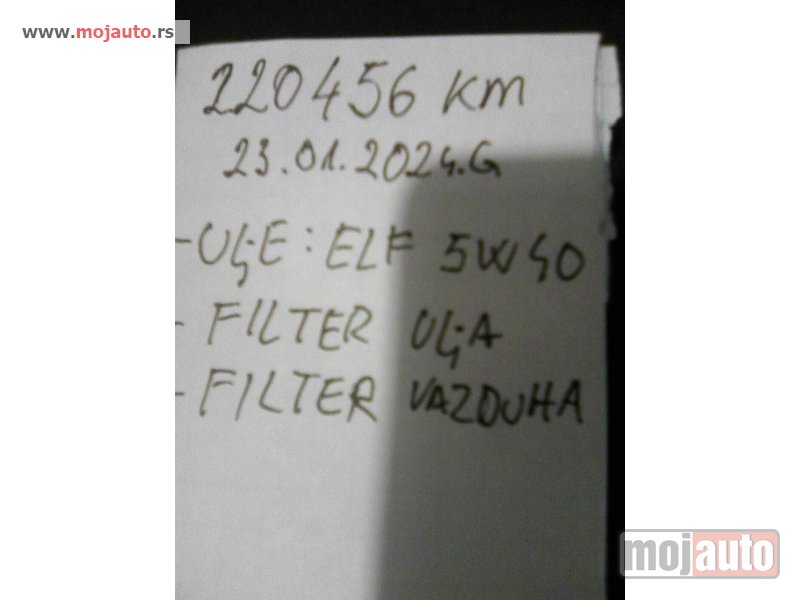 www.mojauto.rs
220456 km
23.01.2024.G
- ULJE: ELF 5W40
- FILTER ULJA
- FILTER VAZDUHA
mojauto